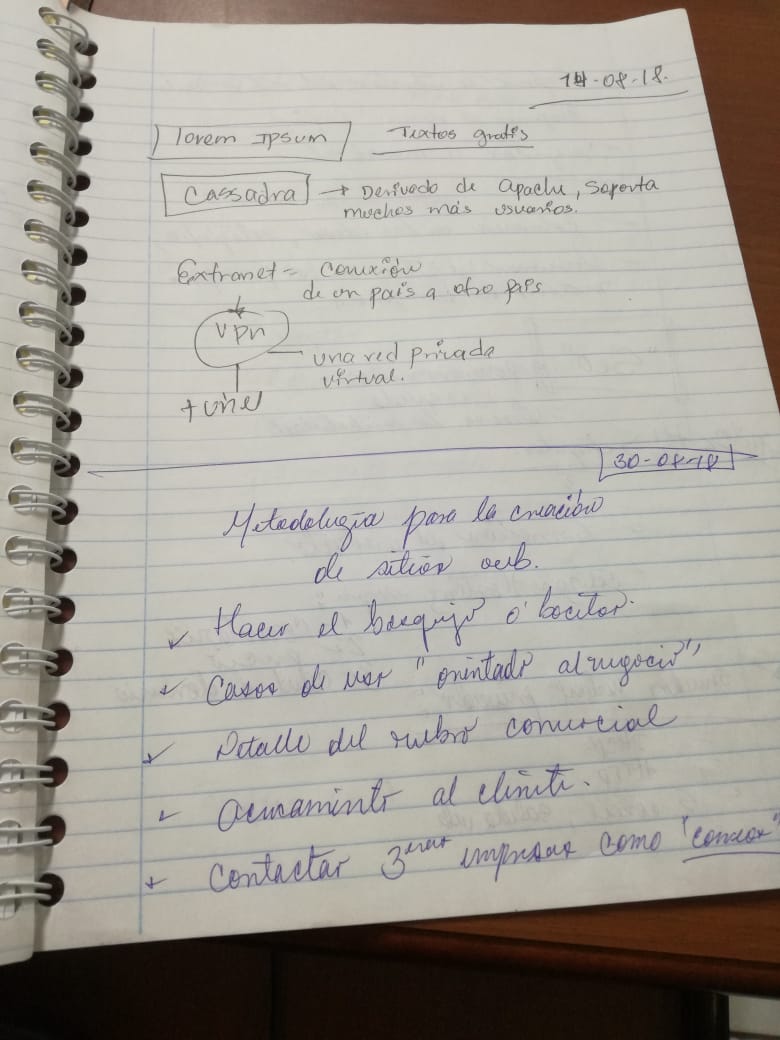 14-08-18.
Lorem Ipsum Textos gratis
Cassadra → Derivado de apache, Soporta
muchos más usuarios.
Extranet = conexión
de un país a otro país
Vpn
una red privada
virtual.
tunel
30-08-18
Metodología para la creación
de sitios web.
Hacer el bosquejo o bocetos.
Casos de uso "orientado al negocio"
Detalle del rubro comercial
acercamiento al cliente.
Contactar 3eras empresas como